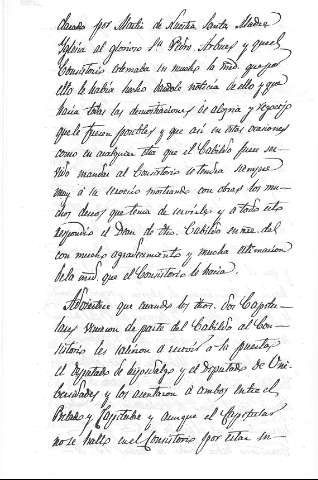 clarado por Martir de Nuestra Santa Madre
Iglesia al glorioso Sn. Pedro Arbues y que el
Consistorio estimaba en mucho la md. que por
ello le habia hecho dandole noticia de ello y que
haria todas las demostraciones de alegria y regocijo
que le fueren posibles y que asi en estas ocasiones
como en cualquier otra que el Cabildo fuere ser-
vido mandar al Consistorio le tendra siempre
muy á su servicio mostrando con obras los mu-
chos deseos que tenia de servirles y a todo esto
respondio el Dean de dho. Cabildo en nre. del
con mucho agradecimiento y mucha estimacion
de la md. que el Consistorio le hacia.
Advirtiese que cuando los dhos. dos Capitu-
lares vinieron de parte del Cabildo al Con-
sistorio les salieron a recivir a la puerta
el diputado de hijosdalgo y el diputado de Uni-
versidades y los asentaron a ambos entre el
Prelado y Capitular y aunque el Capitular
no se hallo en el Consistorio por estar en-